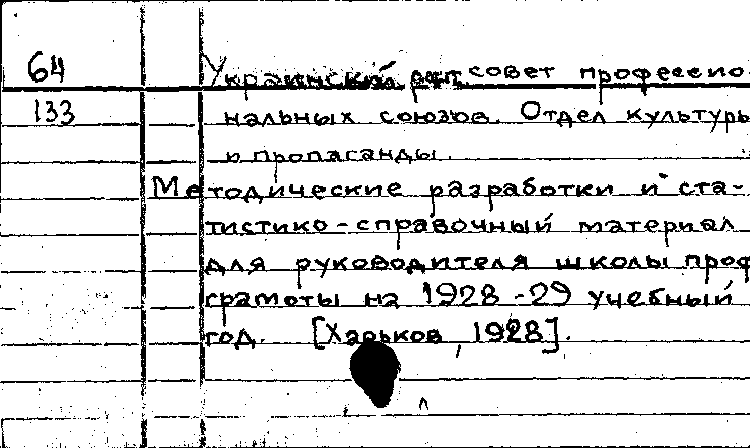 64
Украинский совет профессио
133
нальных союзов. Отдел культуры
и пропаганды.
Методические разработки и ста-
тистико-справочный материал
для руководителя школы проф
грамоты на 1928-29 учебный
год. [Харьков, 1928].